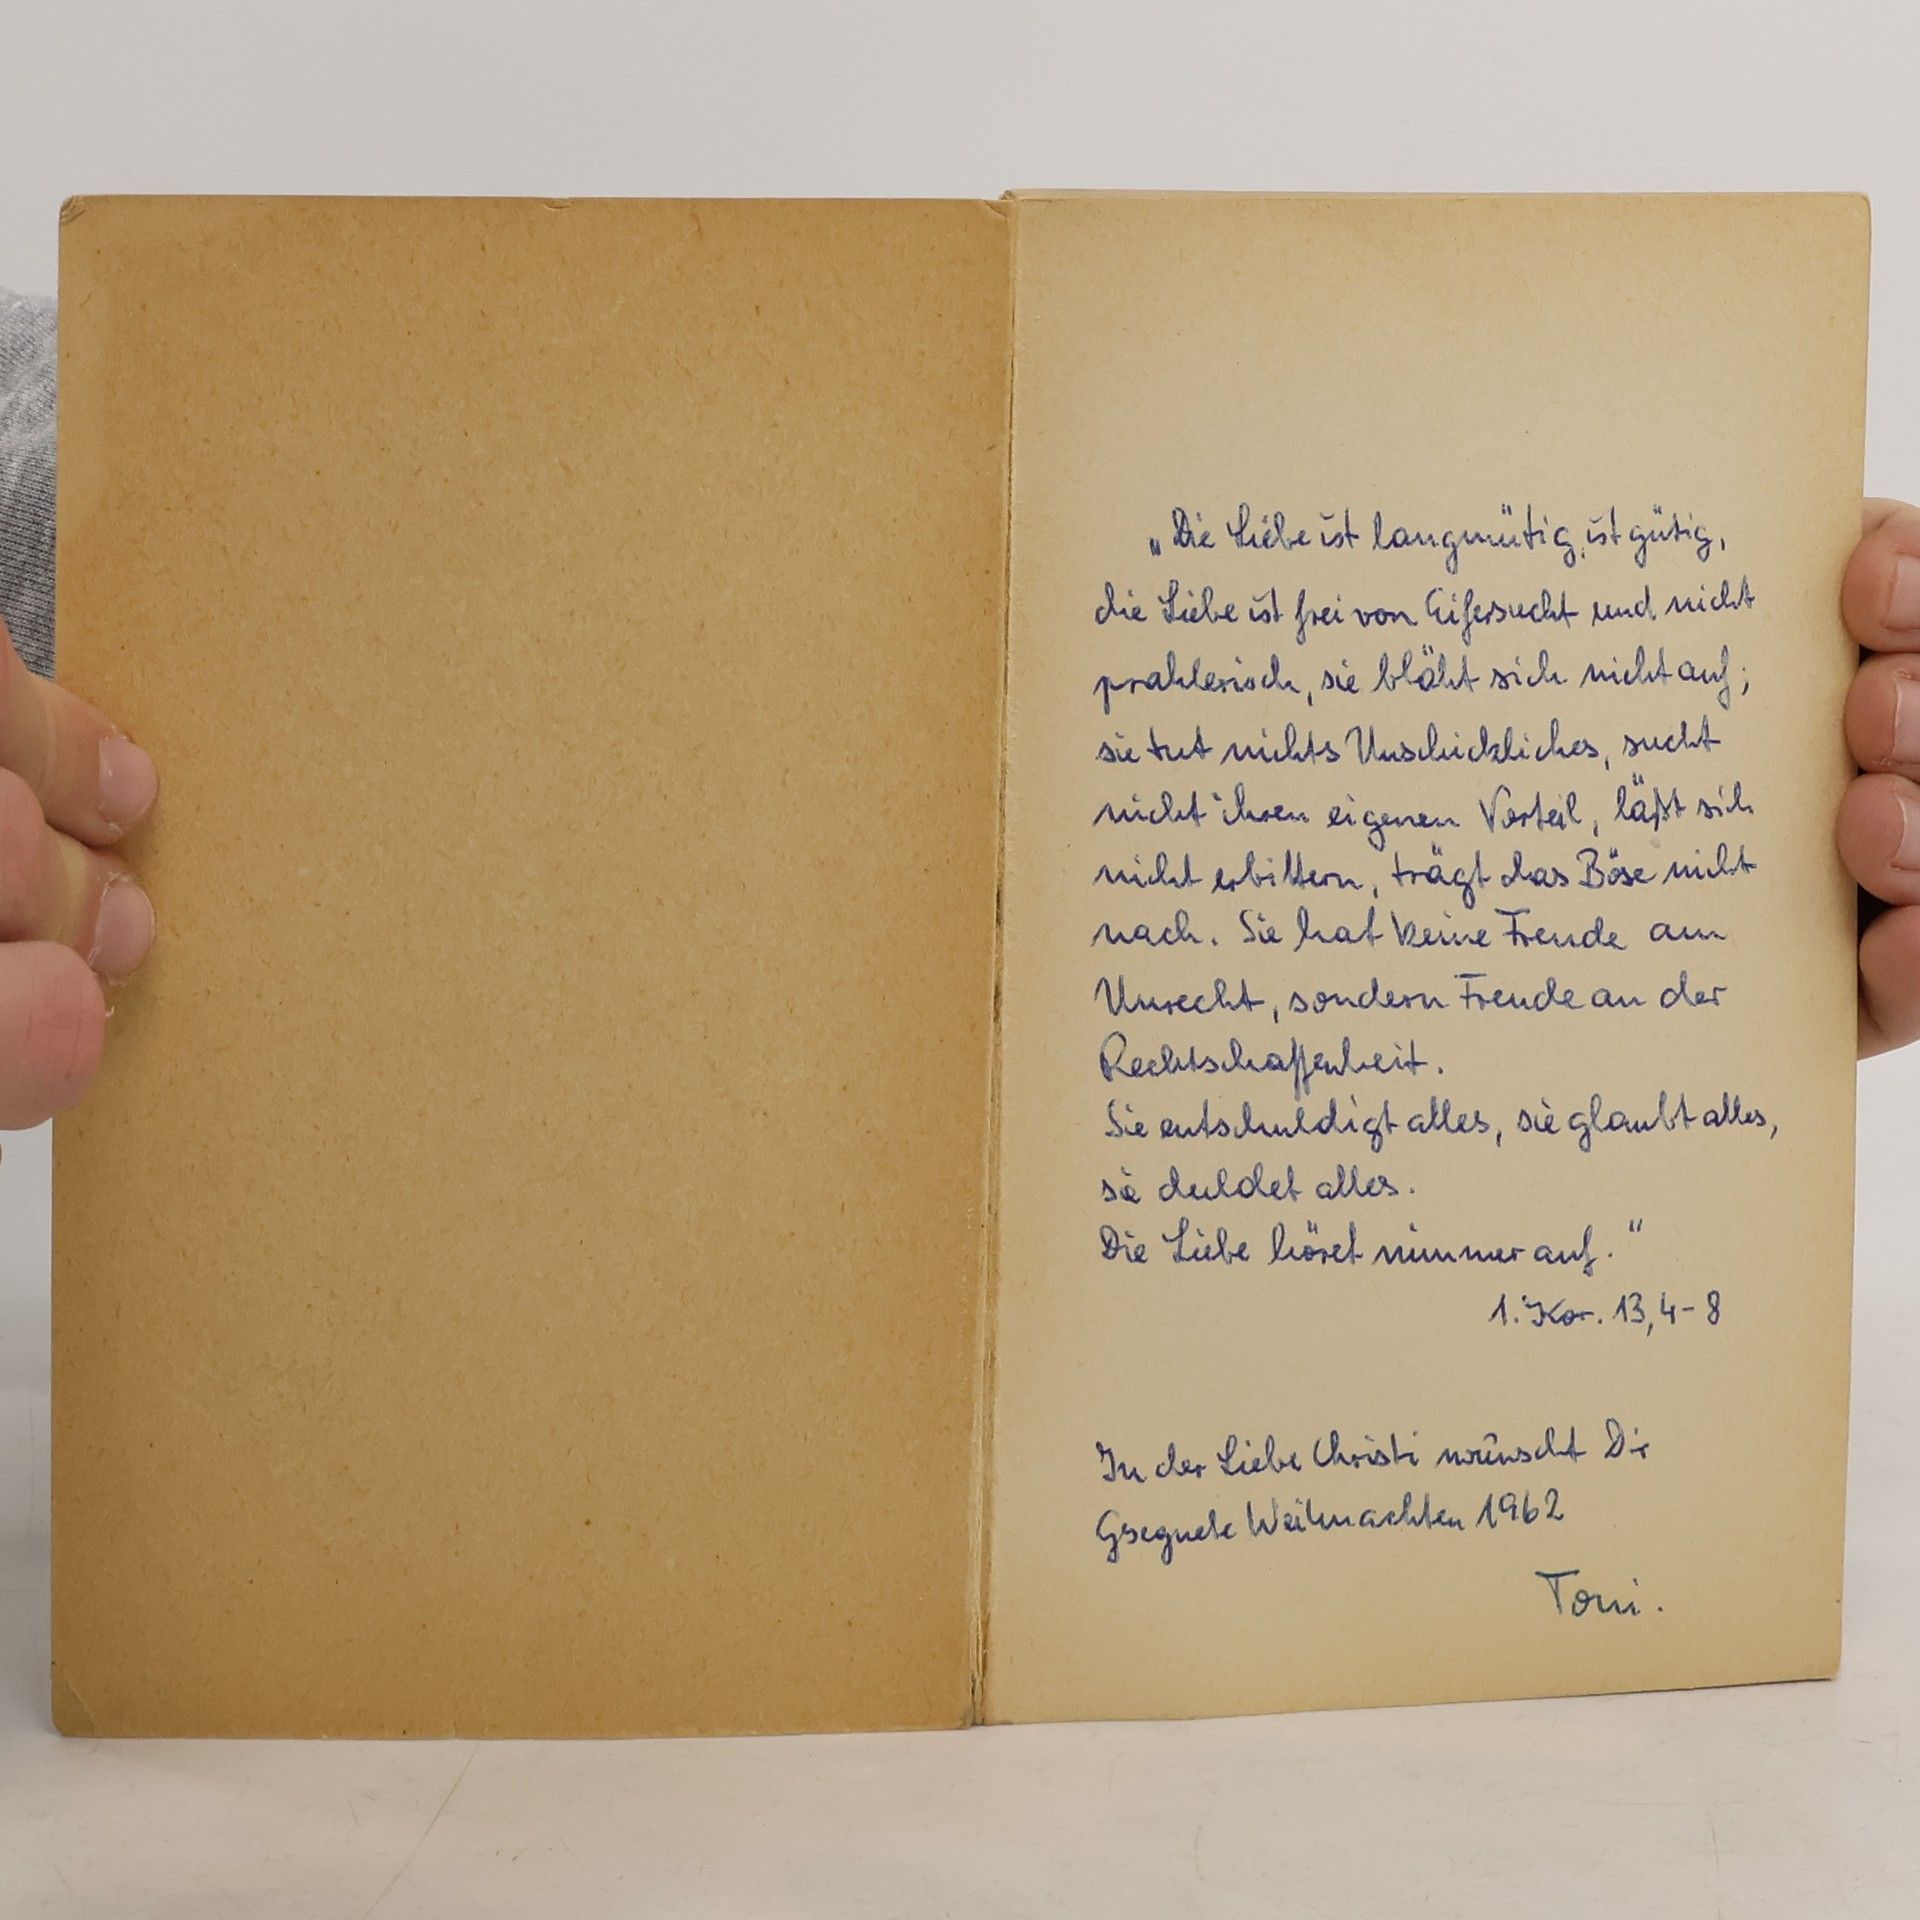 „Die Liebe ist langmütig, ist gütig,
die Liebe ist frei von Eifersucht und nicht
prahlerisch, sie bläht sich nicht auf;
sie tut nichts Unschickliches, sucht
nicht ihren eigenen Vorteil, läßt sich
nicht erbittern, trägt das Böse nicht
nach. Sie hat keine Freude am
Unrecht, sondern Freude an der
Rechtschaffenheit.
Sie entschuldigt alles, sie glaubt alles,
sie duldet alles.
Die Liebe höret nimmer auf."
1. Kor. 13, 4-8
In der Liebe Christi wünscht Dir
Gsegnete Weihnachten 1962
Toni.